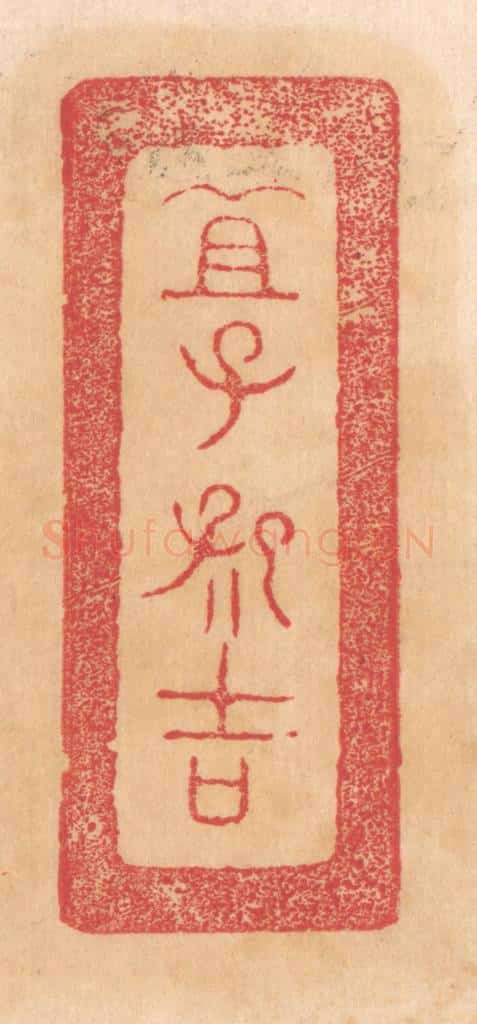 宜子孫吉
Shufawang.CN